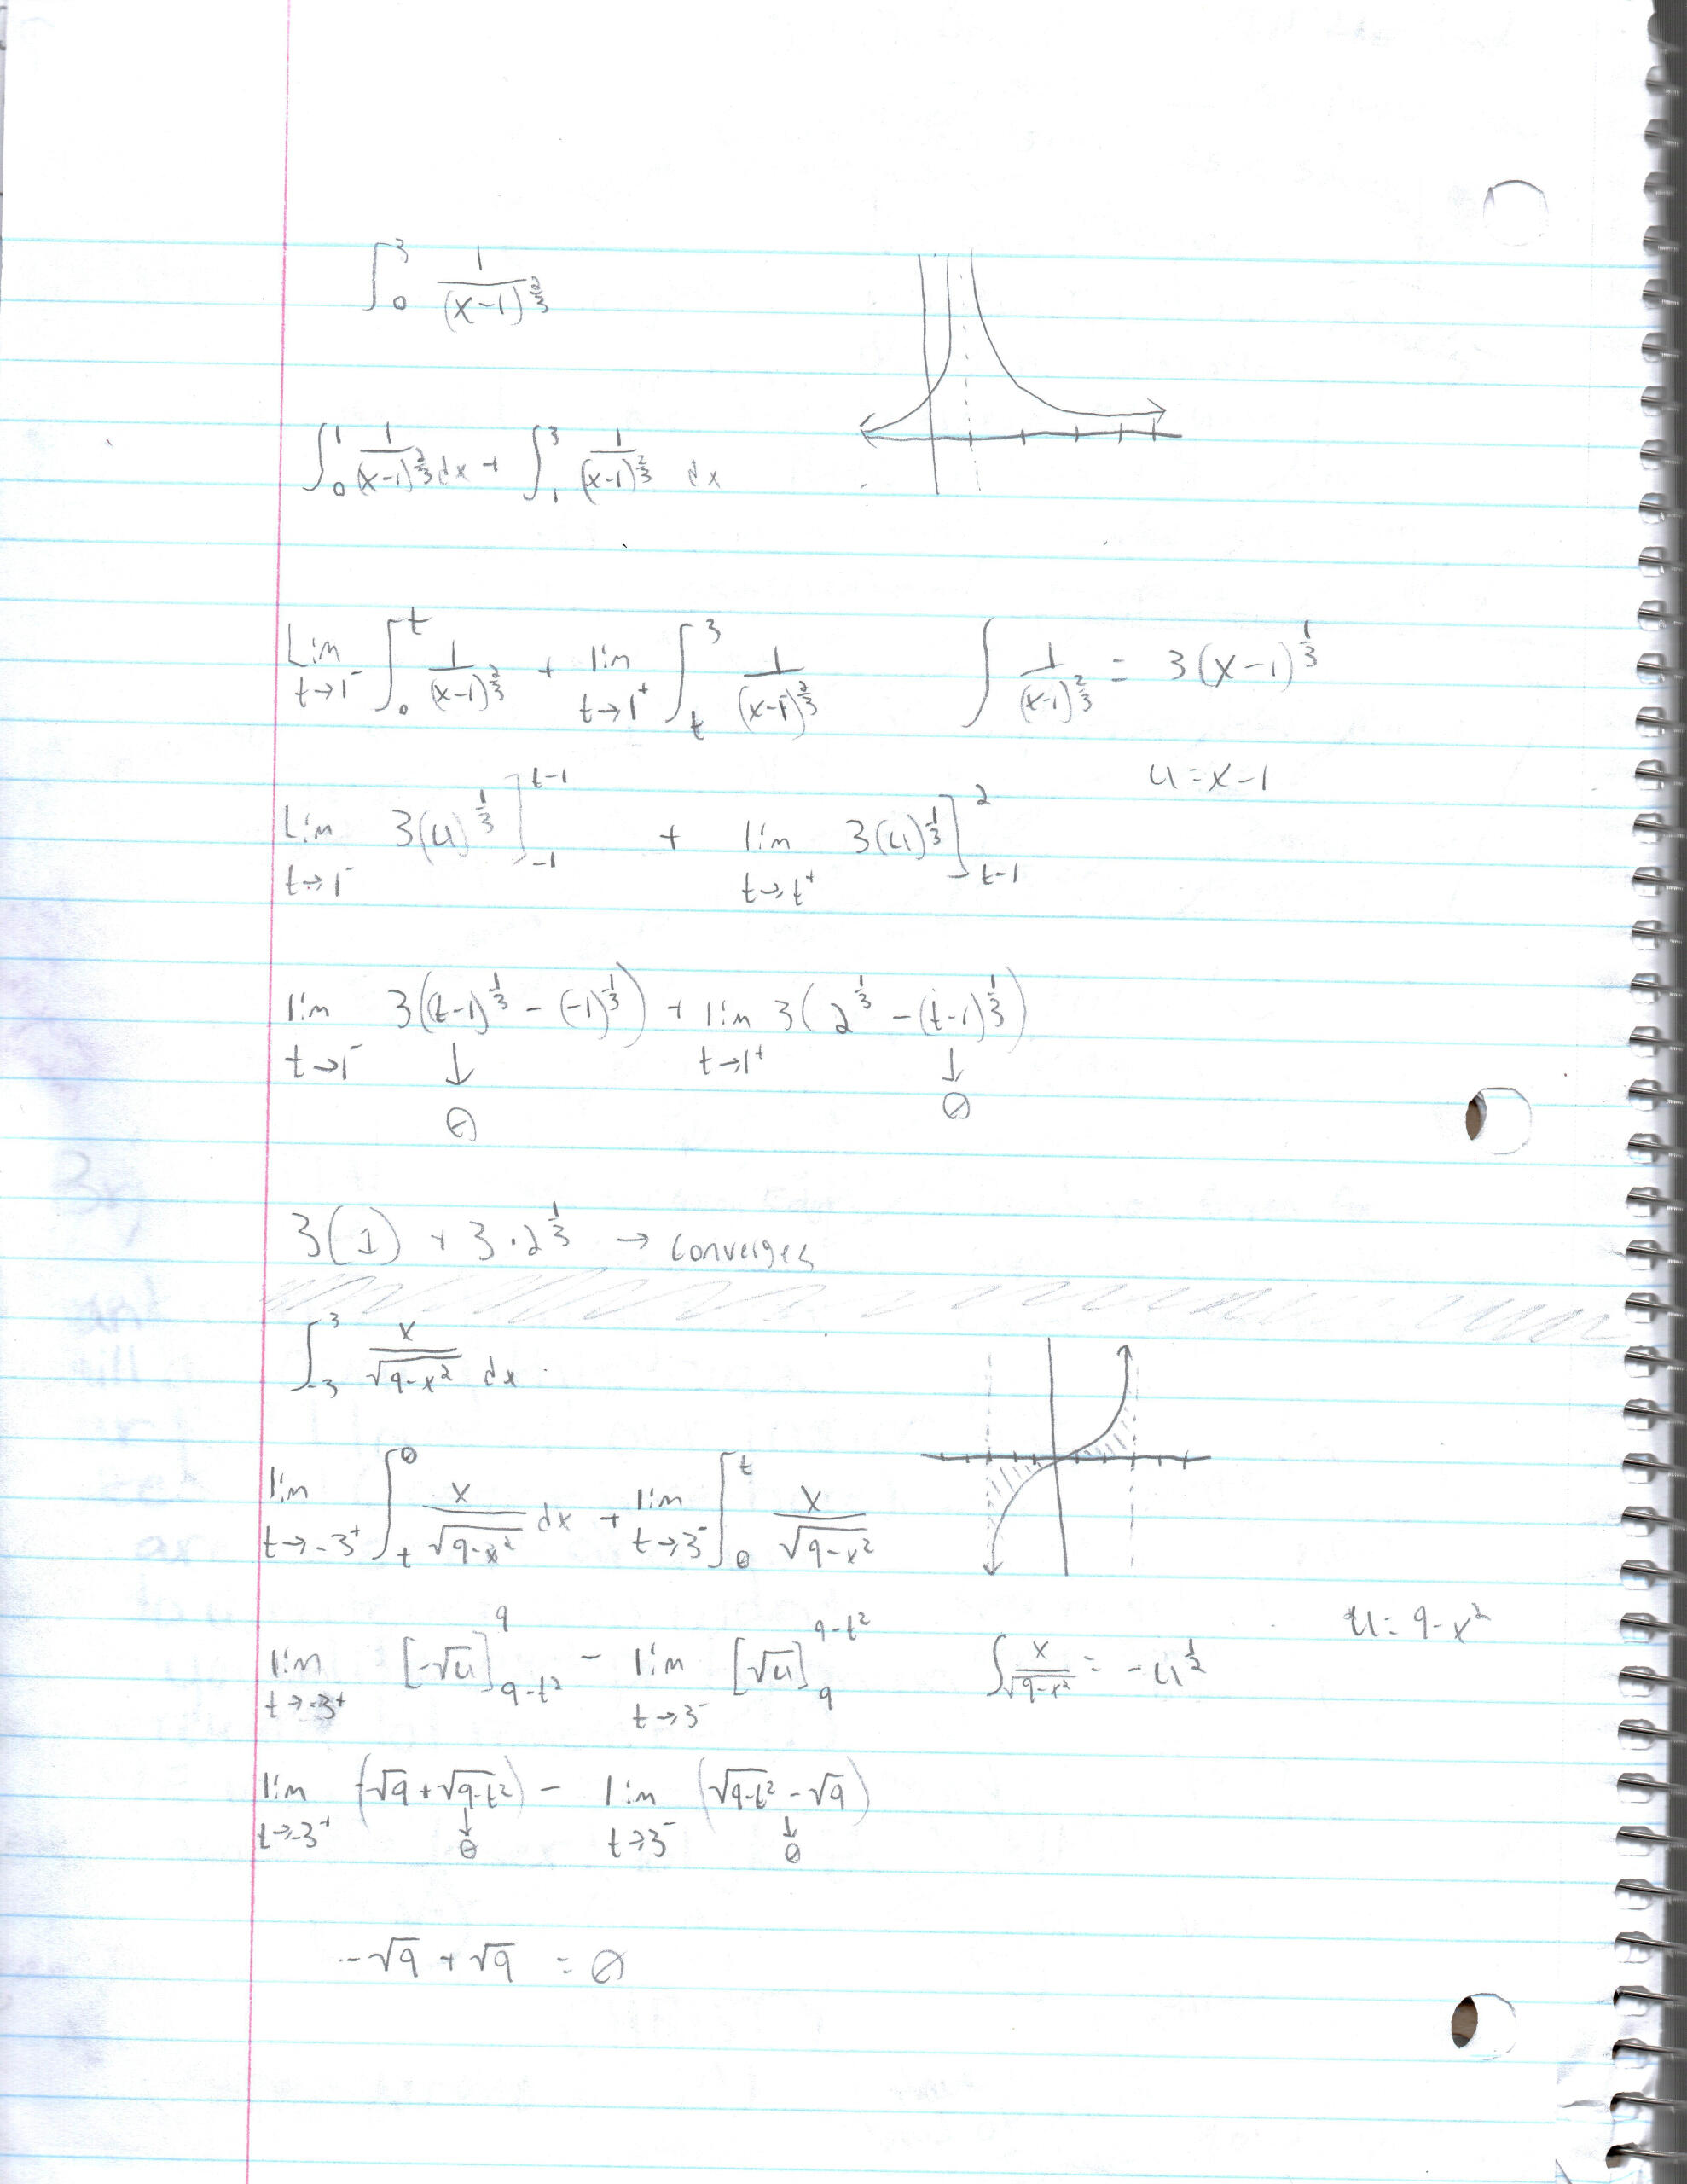 ∫₀³ 1/(x-1)^(2/3)
∫₀¹ 1/(x-1)^(2/3) dx + ∫₁³ 1/(x-1)^(2/3) dx
Lim t→1⁻ ∫₀ᵗ 1/(x-1)^(2/3) + lim t→1⁺ ∫ₜ³ 1/(x-1)^(2/3)   ∫ 1/(x-1)^(2/3) = 3(x-1)^(1/3)
u=x-1
Lim t→1⁻ 3(u)^(1/3) ]₋₁^(t-1) + lim t→t⁺ 3(u)^(1/3) ]_(t-1)^2
lim t→1⁻ 3((t-1)^(1/3) - (-1)^(1/3)) + lim t→1⁺ 3(2^(1/3) - (t-1)^(1/3))
↓ 0   ↓ 0
3(1) + 3·2^(1/3) → converges
∫₋₃³ x/√(9-x²) dx
lim t→-3⁺ ∫ₜ⁰ x/√(9-x²) dx + lim t→3⁻ ∫₀ᵗ x/√(9-x²)
u=9-x²
lim t→-3⁺ [-√u]_(9-t²)^9 - lim t→3⁻ [√u]_9^(9-t²)   ∫ x/√(9-x²) = -u^(1/2)
lim t→-3⁺ (-√9 + √(9-t²)) - lim t→3⁻ (√(9-t²) - √9)
↓ 0   ↓ 0
-√9 + √9 = 0